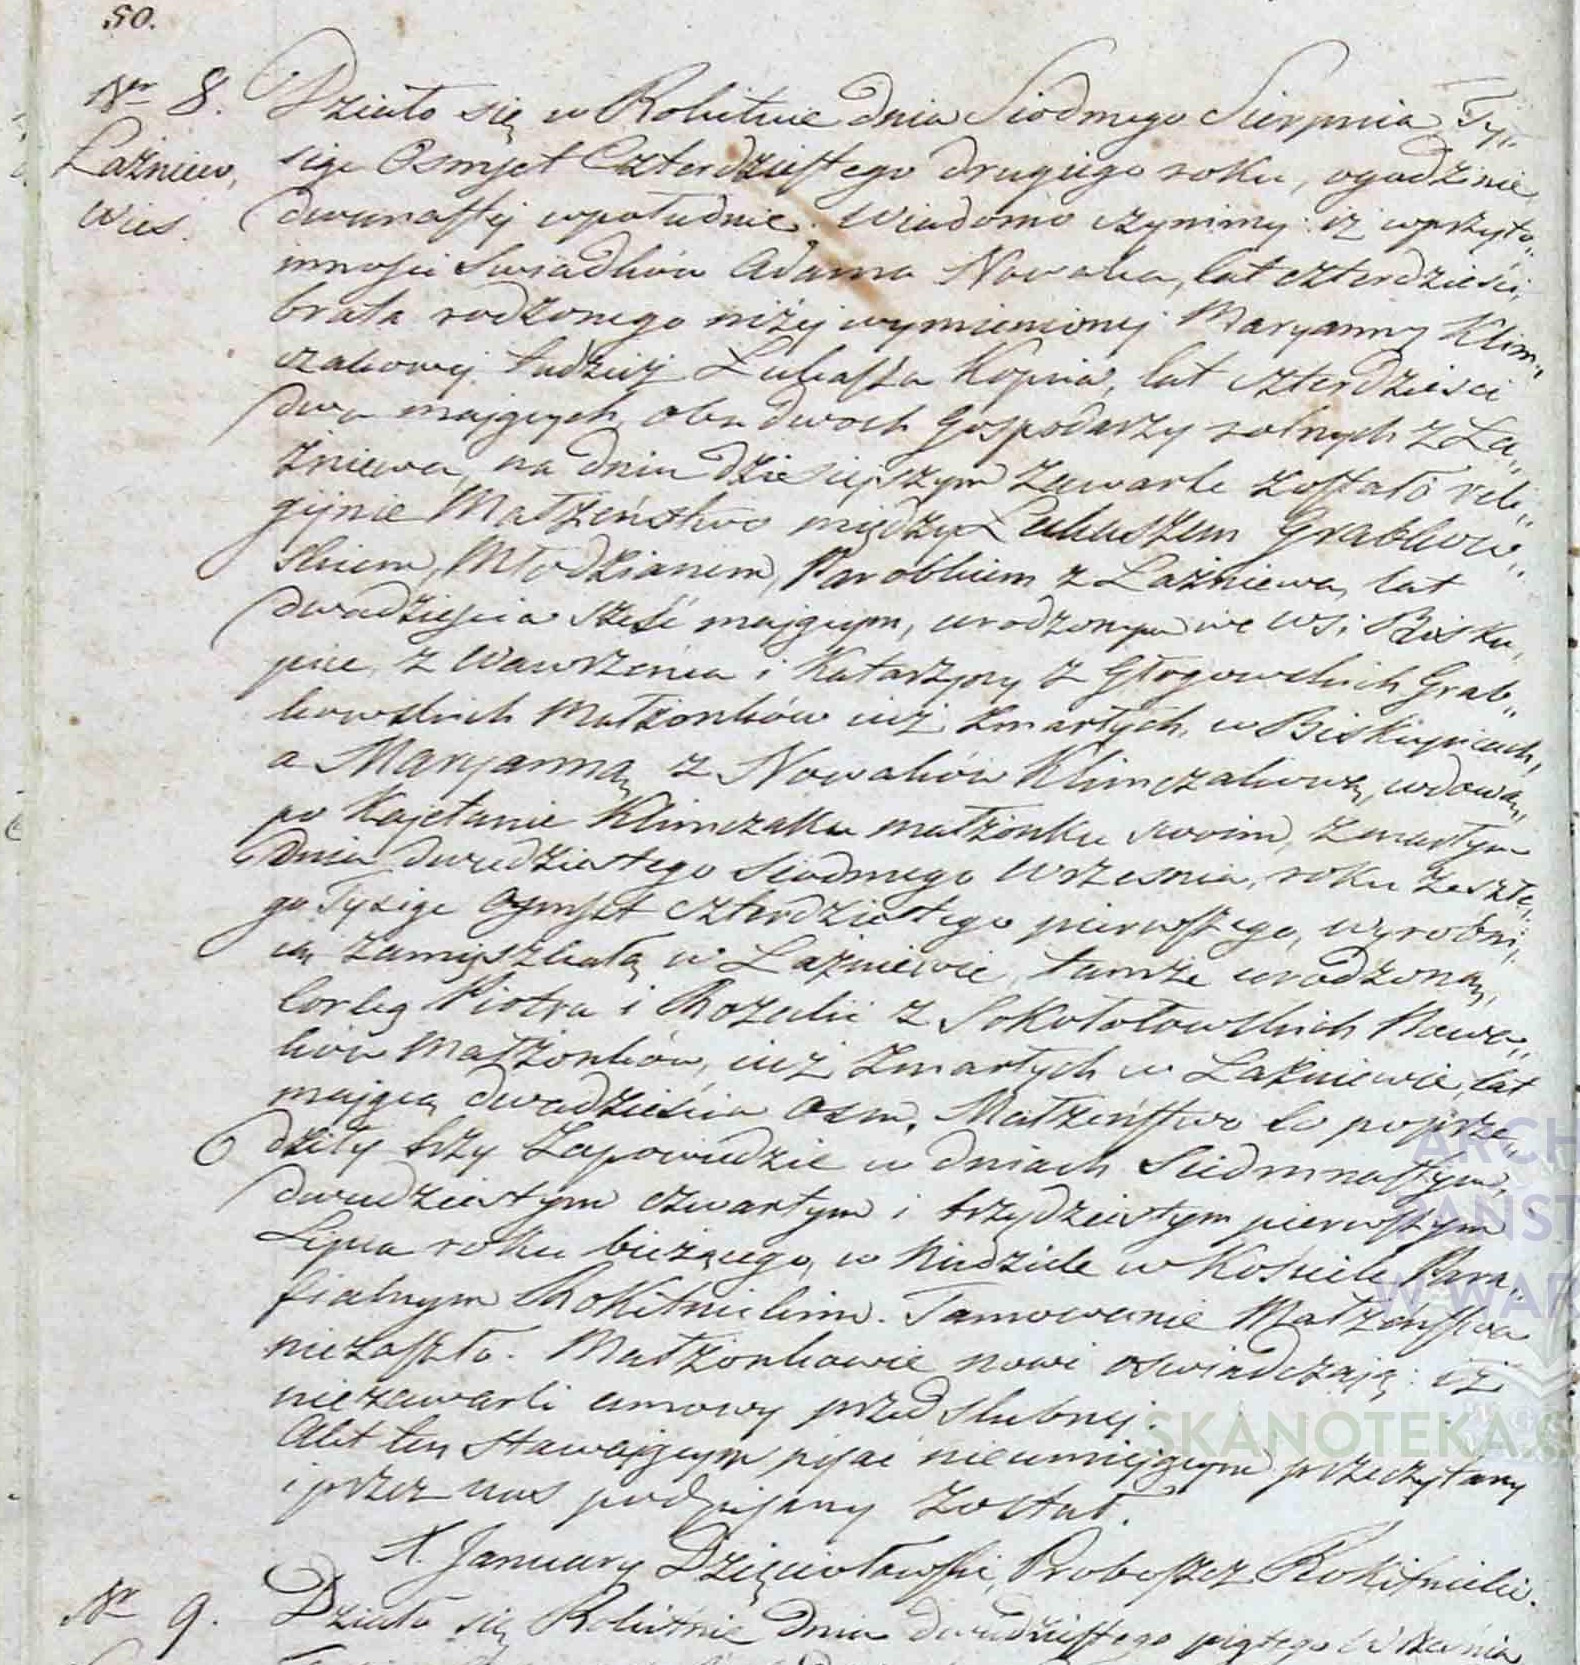 50.
Nr 8.
Łaźniew,
Wieś.
Działo się w Rokitnie dnia Siódmego Sierpnia Ty„
siąc Osmset Czterdziestego drugiego roku, o godzinie
dwunastej w południe. Wiadomo czynimy iż w przyto„
mności Swiadków Adama Nowaka, lat czterdzieści,
brata rodzonego niżej wymienionej Maryanny Klim„
czakowej, tudzież Łukasza Kopcia, lat czterdzieści
dwa mających, obudwoch Gospodarzy rolnych z Ła„
źniewa, na dniu dzisiejszym zawarte zostało reli„
gijnie Małżeństwo między Łukaszem Grabkow„
skiem, Młodzianem, Parobkiem z Łaźniewa, lat
dwadzieścia sześć mającym, urodzonym we wsi Bisku„
pice, z Wawrzeńca i Katarzyny z Głogowskich Grab„
kowskich Małżonków już zmarłych, w Biskupicach,
a Maryanną z Nowaków Klimczakową, wdową,
po Kajetanie Klimczaku małżonku swoim, zmarłym
dnia dwudziestego siodmego Września, roku zeszłe„
go Tysiąc Osmset czterdziestego pierwszego, wyrobni„
cą zamięszkałą w Łaźniewie, tamże urodzoną,
Corką Piotra i Rozalii z Sokołołowskich Nowa„
ków Małżonków, już zmarłych w Łaźniewie, lat
mającą dwadzieścia osm. Małżeństwo to poprze„
dziły trzy Zapowiedzie w dniach Siedmnastym,
dwudziestym czwartym i trzydziestym pierwszym
Lipca roku bieżącego, w Niedziele w Kościele Para„
fialnym Rokitnickim. Tamowanie Małżeństwa
niezaszło. Małżonkowie nowi oswiadczają iż
niezawarli umowy przed slubnej.
Akt ten Stawającym pisać nieumiejącym przeczytany
i przez nas podpisany został.
X. January Dzięciołowski, Proboszcz Rokitnicki.
Nr 9.
Działo się Rokitnie dnia dwudziestego piątego Września